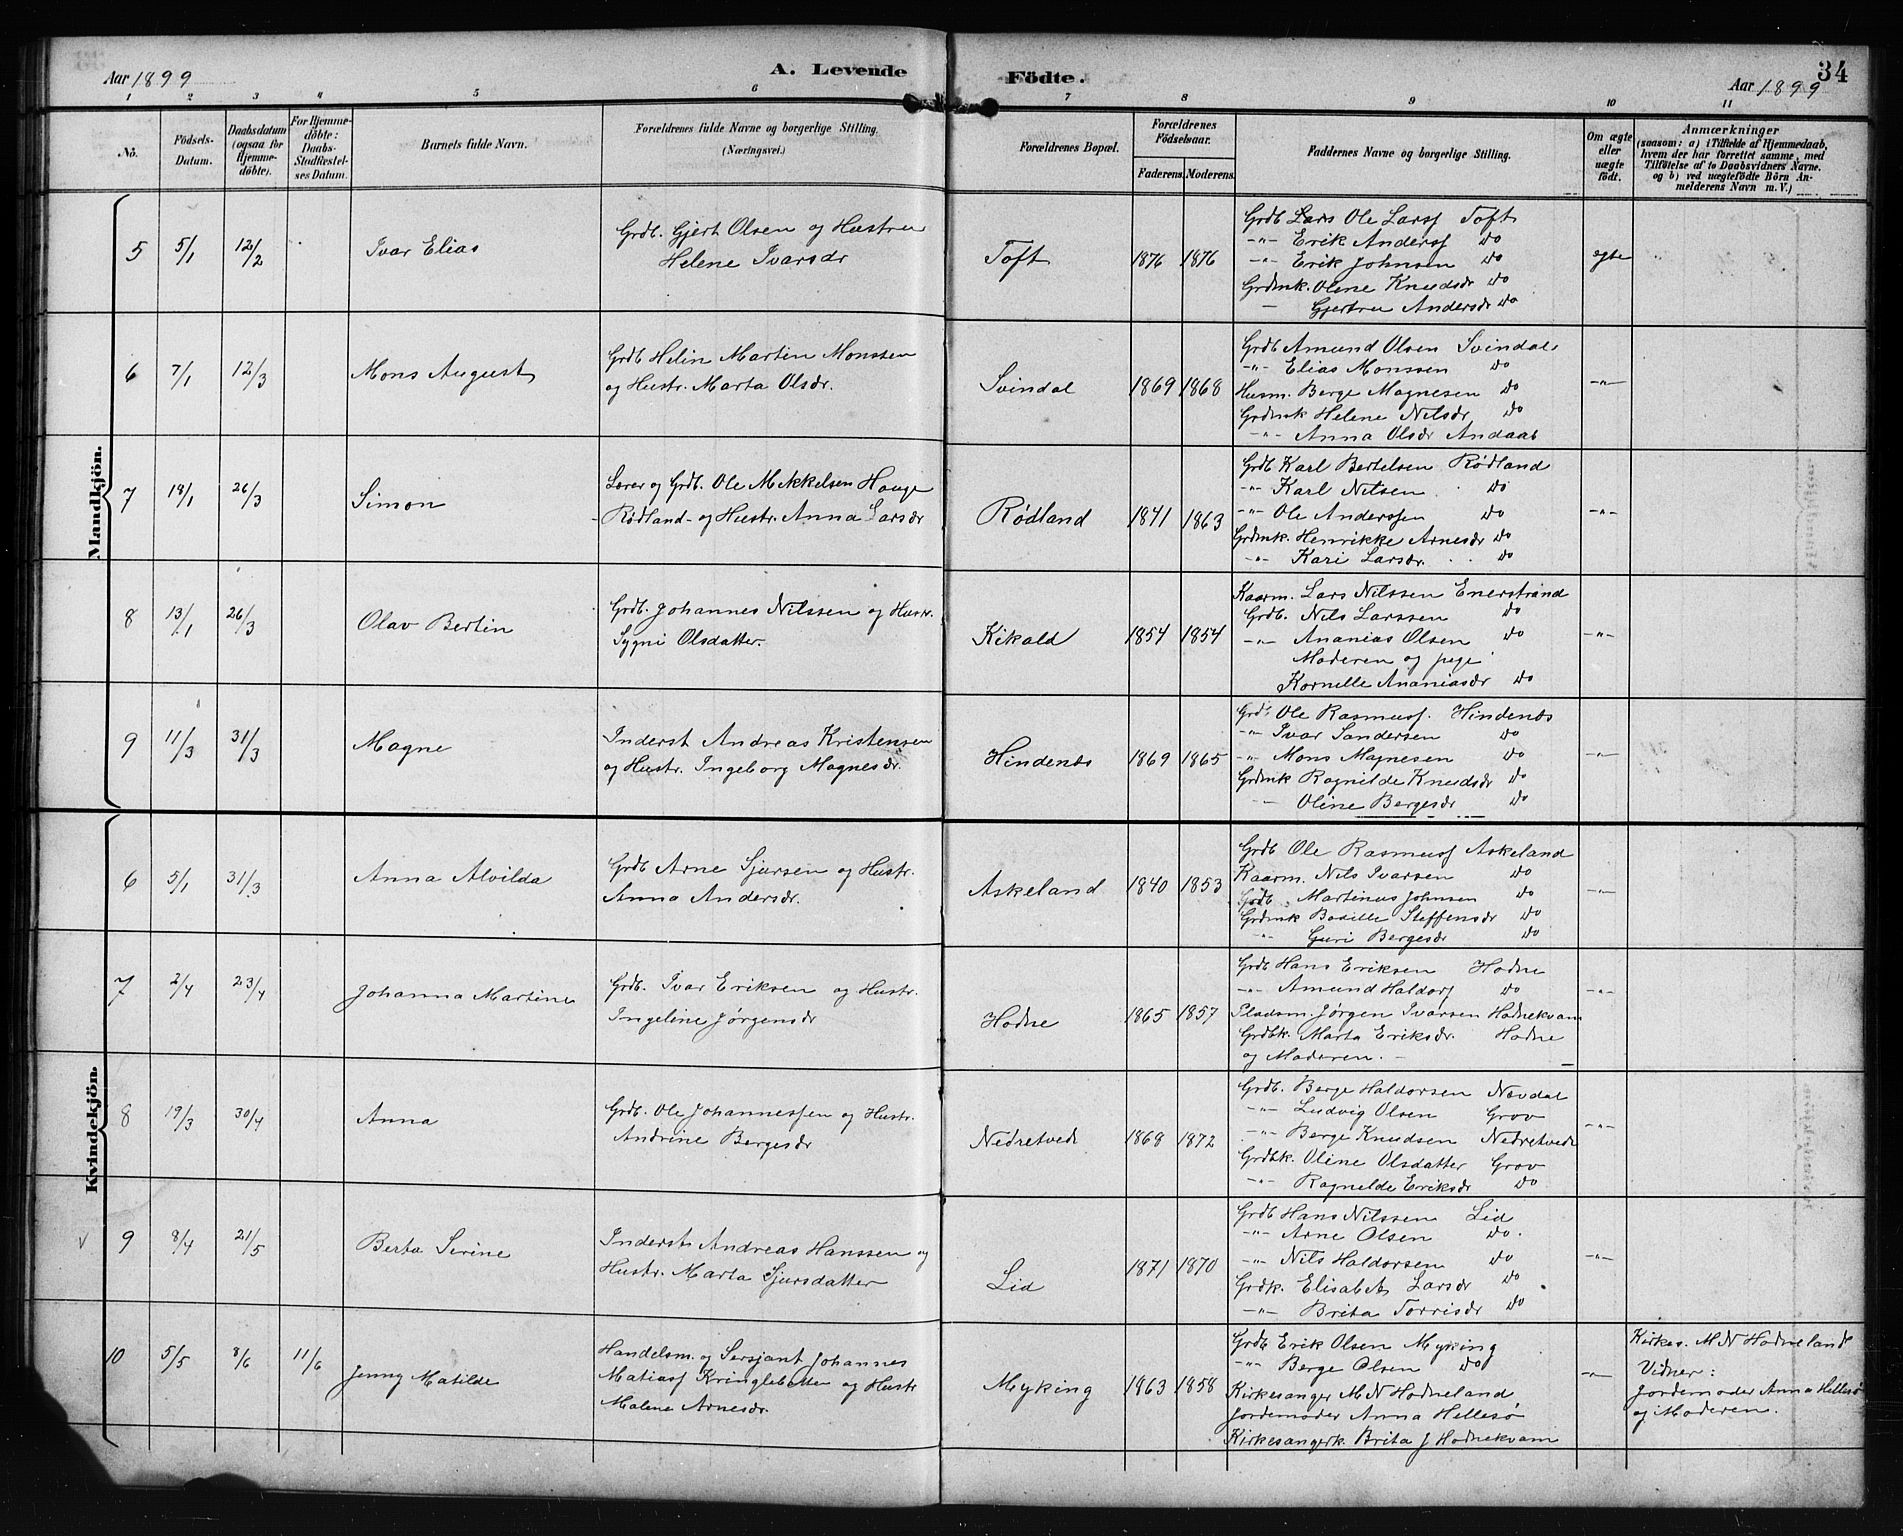 Aar 1899
A. Levende
Födte.
34
Aar 1899
1 2 3 4 5 6 7 8 9 10 11
No.
Födsels-
Datum.
Daabsdatum
(ogsaa för
Hjemme-
döbte).
For Hjemme-
döbte:
Daabs-
Stadfæstel-
ses Datum.
Barnets fulde Navn.
Forældrenes fulde Navne og borgerlige Stilling.
(Næringsvei.)
Forældrenes Bopæl.
Forældrenes
Födselsaar.
Faderens.
Moderens.
Faddernes Navne og borgerlige Stilling.
Om ægte
eller
uægte
födt.
Anmærkninger
(saasom: a) i Tilfælde af Hjemmedaab,
hvem der har forrettet samme, med
Tilföielse af to Daabsvidners Navne.
og b) ved uægtefödte Börn An-
melderens Navn m. V.)
Mandkjön.
5 5/1 12/2 Ivar Elias
Grdb. Gjert Olsen og Hustru
Helene Ivarsdr
Toft 1876 1876
Grdb Lars Ole Larss Toft
-"- Erik Anderss Do
-"- Erik Johnsen Do
Grdmk. Oline Knudsdr Do
— Gjertru Andersdr Do
egte
6 7/1 12/3 Mons August
Grdb Helin Martin Monssen
og Hustr. Marta Olsdr.
Svindal 1869 1868
Grdb Amund Olsen Svindal
-"- Elias Monssen Do
Husm. Berge Magnesen Do
Grdmk Helene Nilsdr Do
-"- Anna Olsdr Andaas
-"-
7 18/1 26/3 Simon
Lærer og Grdb. Ole Mikkelsen Hauge
Rødland og Hustr. Anna Larsdr
Rødland 1841 1863
Grdb Karl Bertelsen Rødland
-"- Karl Nilsen Do
-"- Ole Anderssen Do
Grdmk. Henrikke Arnesdr Do
-"- Kari Larsdr. Do
-"-
8 13/1 26/3 Olav Bertin
Grdb. Johannes Nilssen og Hustr.
Sygni Olsdatter.
Kikald 1854 1854
Kaarm. Lars Nilssen Enerstrand
Grdb. Nils Larssen Do
-"- Ananias Olsen Do
Moderen og pige
Kornelle Ananiasdr Do
-"-
9 11/3 31/3 Magne
Inderst Andreas Kristensen
og Hustr. Ingeborg Magnesdr.
Hindenes 1869 1865
Grdb Ole Rasmuss. Hindenes
-"- Ivar Sandersen Do
-"- Mons Magnesen Do
Grdmk Ragnilde Knudsdr Do
-"- Oline Bergesdr Do
-"-
Kvindekjön.
6 5/1 31/3 Anna Alvilda
Grdb Arne Sjursen og Hustr.
Anna Andersdr.
Askeland 1840 1853
Grdb Ole Rasmuss Askeland
Kaarm. Nils Ivarsen Do
Grdb Martinus Johnsen Do
Grdmk Bosille Steffensdr Do
-"- Guri Bergesdr Do
-"-
7 2/4 23/4 Johanna Martine
Grdb. Ivar Eriksen og Hustr.
Ingeline Jørgensdr
Hodne 1865 1857
Grdb Hans Eriksen Hodne
-"- Amund Haldors Do
Pladsm. Jørgen Ivarsen Hodnekvam
Grdbk. Marta Eriksdr. Hodne
og Moderen.
-"-
8 19/3 30/4 Anna
Grdb. Ole Johannessen og Hustr.
Andrine Bergesdr
Nedretvedt 1868 1872
Grdb. Berge Haldorsen Nävdal
-"- Ludvig Olsen Grov
-"- Berge Knudsen Nedretvedt
Grdbk. Oline Olsdatter Grov
-"- Ragnilde Eriksdr Do
-"-
v 9 8/4 21/5 Berta Serine
Inderst Andreas Hanssen og
Hustr. Marta Sjursdatter
Lid 1871 1870
Grdb Hans Nilssen Lid
-"- Arne Olsen Do.
-"- Nils Haldorsen Do
Grdk. Elisabet Larsdr Do
-"- Brita Torrisdr Do
-"-
10 5/5 8/6 11/6 Jenny Matilde
Handelsm. og Sersjant Johannes
Matiass Kringlebotten og Hustr
Malene Arnesdr.
Myking 1863 1858
Grdb Erik Olsen Myking
-"- Berge Olsen Do
Kirkesanger M N Hodneland
Jordemoder Anna Hellesø
Kirkesangerk. Brita J Hodnekvam
-"-
Kirkes. M N Hodneland
Vidner:
Jordemoder Anna Hellesø
og Moderen.